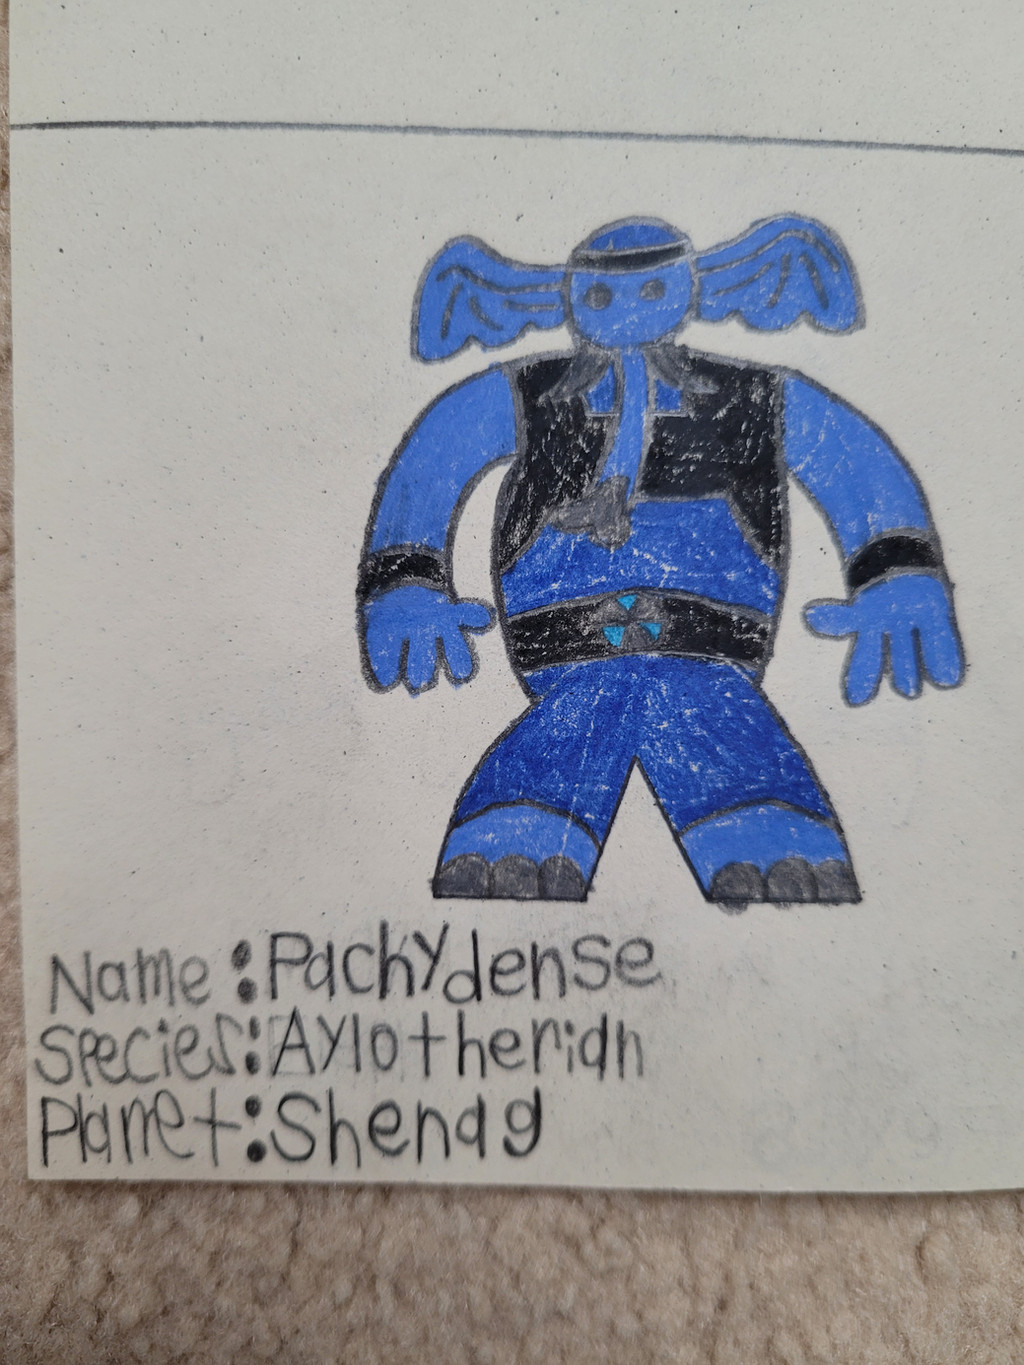 Name: Pachydense
Species: Aylotherian
Planet: Shenag